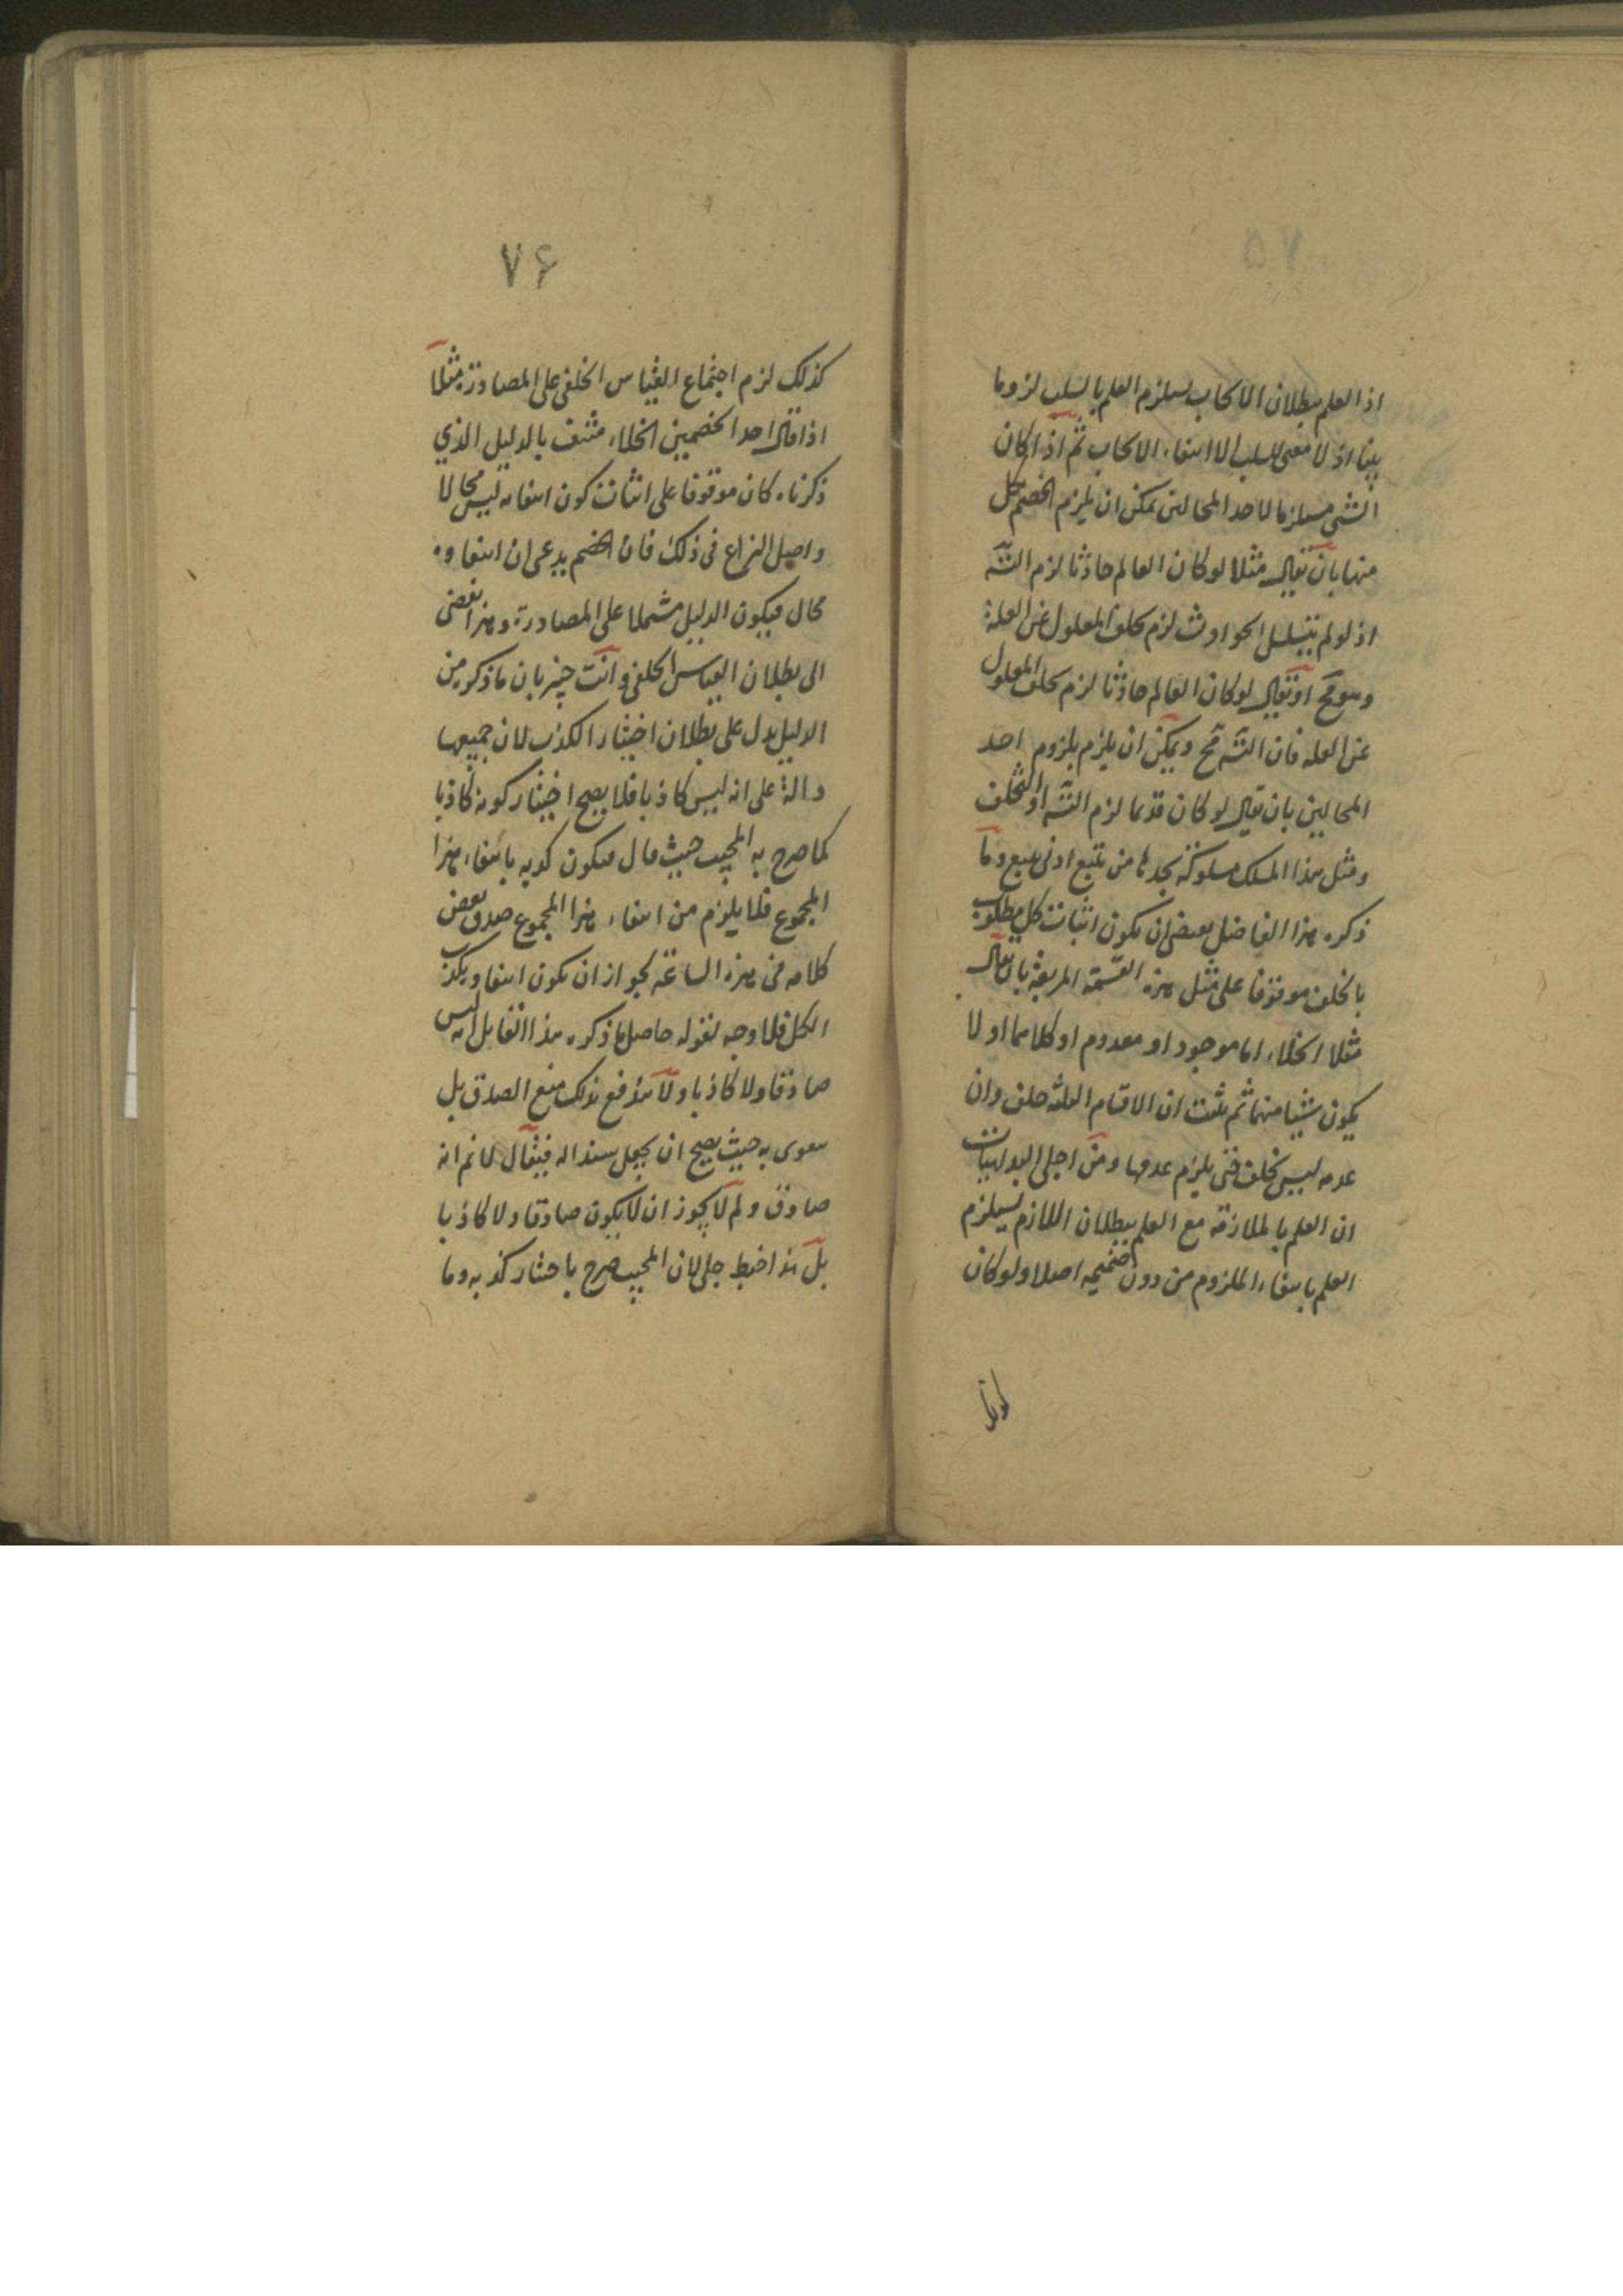 اذ العلم ببطلان الایجاب یستلزم العلم بالسلب لزوما
بینا اذ لا معنی للسلب الا انتفاء الایجاب ثم اذا کان
الشی مستلزما لاحد المحالین یمکن ان یلزم الخصم بکل
منها بان یقال مثلا لو کان العالم حادثا لزم التسّ
اذ لو لم یتسلسل الحوادث لزم تخلف المعلول عن العلة
وهو مح او یقال لو کان العالم حادثا لزم تخلف المعلول
عن العله فان التسّ مح ویمکن ان یلزم بلزوم احد
المحالین بان یقال لو کان قدیما لزم التسّ او التخلف
ومثل هذا المسلک مسلوکة یجدها من تتبع ادنی تتبع وما
ذکره هذا الفاضل یقتضی ان یکون اثبات کل مطلوب
بالخلف موقوفا علی مثل هذه القسمة المربعة بان یقال
مثلا الخلاء اما موجود او معدوم او کلاهما او لا
یکون شیئا منهما ثم یثبت ان الاقسام الثلثة خلف وان
عدمه لیس بخلف حتی یلزم عدمها ومن اجلی البدیهیات
ان العلم بالملازمة مع العلم ببطلان اللازم یستلزم
العلم بانتفاء الملزوم من دون ضمیمه اصلا ولو کان
۷۶
کذلک لزم اجتماع القیاس الخلفی علی المصادرة مثلا
اذا قال احد الخصمین الخلاء منتف بالدلیل الذی
ذکرناه کان موقوفا علی اثبات کون انتفائه لیس محالا
واصل النزاع فی ذلک فان الخصم یدعی ان انتفاوه
محال فیکون الدلیل مشتملا علی المصادرة وهذا یفضی
الی بطلان القیاس الخلفی وانت خبیر بان ما ذکره من
الدلیل یدل علی بطلان اختیار الکذب لان جمیعها
دالة علی انه لیس کاذبا فلا یصح اختیار کونه کاذبا
کما صرح به المجیب حیث قال فیکون کذبه بانتفاء هذا
المجموع فلا یلزم من انتفاء هذا المجموع صدق بعض
کلامه فی هذه الساعة لجواز ان یکون انتفاوه بکذب
الکل فلا وجه لقوله حاصل ما ذکره هذا القابل انه لیس
صادقا ولا کاذبا ولا یندفع بذلک منع الصدق بل
یقوی به حیث یصح ان یجعل سندا له فیقال لا نم انه
صادق ولم لا یجوز ان لا یکون صادقا ولا کاذبا
بل هذا خبط جلی لان المجیب صرح باختیار کذبه وما